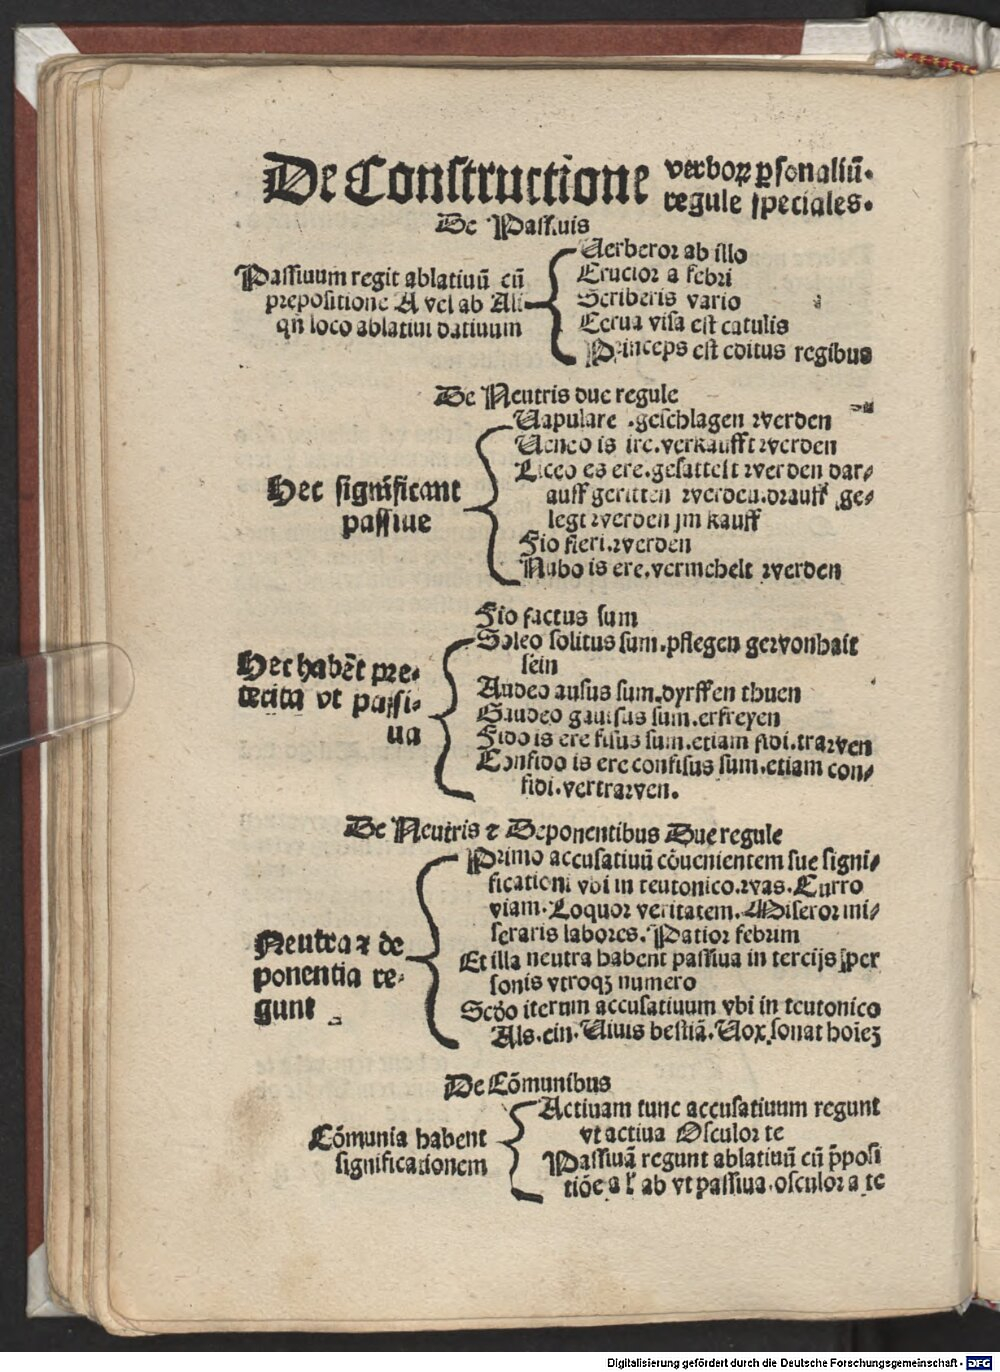 De Constructione verboꝝ ꝑsonaliū.
regule speciales.
De Passiuis
Passiuum regit ablatiuū cū
prepositione A vel ab Ali
qn̄ loco ablatiui datiuum
Uerberor ab illo
Crucior a febri
Scriberis vario
Cerua visa est catulis
Princeps est editus regibus
De Neutris due regule
Hec significant
passiue
Uapulare .geschlagen werden
Ueneo is ire.verkaufft werden
Liceo es ere.gesattelt werden dar⸗
auff geritten werden.drauff ge⸗
legt werden jm kauff
Fio fieri.werden
Nubo is ere.vermehelt werden
Hec habēt pre⸗
terita vt passi⸗
ua
Fio factus sum
Soleo solitus sum.pflegen gewonhait
sein
Audeo ausus sum.dyrffen thuen
Gaudeo gauisus sum.erfreyen
Fido is ere fisus sum.etiam fidi.trawen
Confido is ere confisus sum.etiam con⸗
fidi.vertrawen.
De Neutris ⁊ Deponentibus Due regule
Neutra ⁊ de
ponentia re⸗
gunt
Primo accusatiuū cōuenientem sue signi⸗
ficationi vbi in teutonico.was.Curro
viam.Loquor veritatem.Miseror mi⸗
seraris labores.Patior febrim
Et illa neutra habent passiua in tercijs per
sonis vtroqꝫ numero
Scdo iterum accusatiuum vbi in teutonico
Als.ein.Uiuis bestiā.Uox sonat hoīeꝫ
De Cōmunibus
Cōmunia habent
significationem
Actiuam tunc accusatiuum regunt
vt actiua Osculor te
Passiuā regunt ablatiuū cū p̄posi
tiōe a l' ab vt passiua.osculor a te
Digitalisierung gefördert durch die Deutsche Forschungsgemeinschaft - DFG